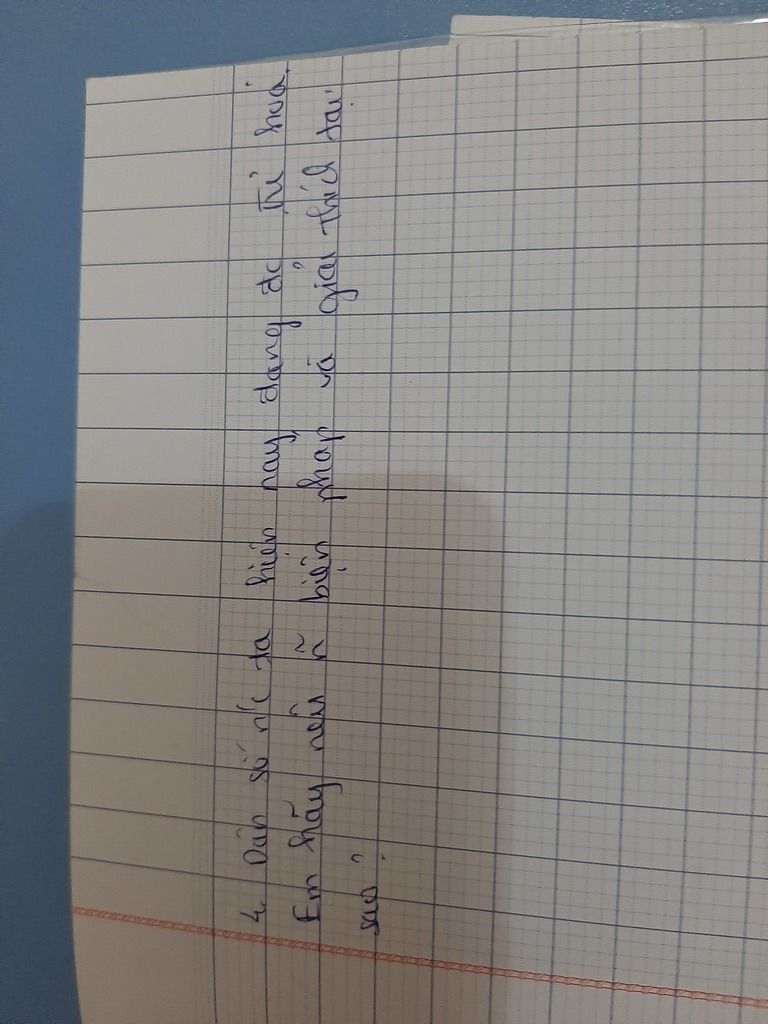 4. Dân số n/c ta hiện nay đang đc trẻ hoá.
Em hãy nêu ~ biện pháp và giải thích tại
sao?